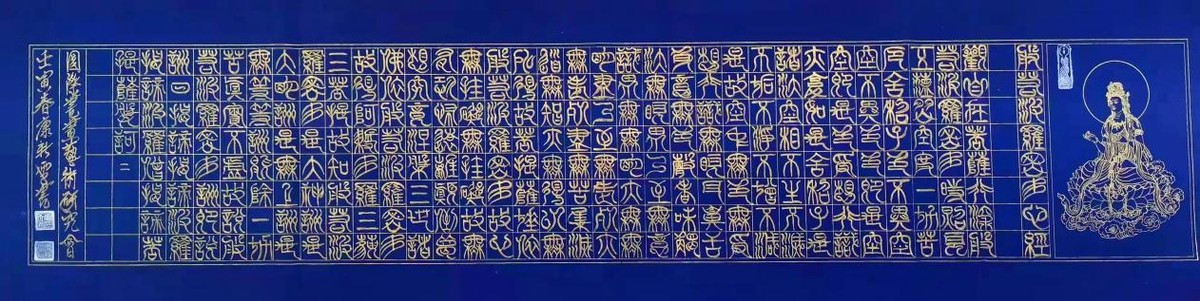 般若波羅蜜多心經
觀自在菩薩行深般
若波羅蜜多時照見
五蘊皆空度一切苦
厄舍利子色不異空
空不異色色即是空
空即是色受想行識
亦復如是舍利子是
諸法空相不生不滅
不垢不淨不增不減
是故空中無色無受
想行識無眼耳鼻舌
身意無色聲香味觸
法無眼界乃至無意
識界無無明亦無無
明盡乃至無老死亦
無老死盡無苦集滅
道無智亦無得以無
所得故菩提薩埵依
般若波羅蜜多故心
無罣礙無罣礙故無
有恐怖遠離顛倒夢
想究竟涅槃三世諸
佛依般若波羅蜜多
故得阿耨多羅三藐
三菩提故知般若波
羅蜜多是大神咒是
大明咒是無上咒是
無等等咒能除一切
苦真實不虛故說般
若波羅蜜多咒即說
咒曰揭諦揭諦波羅
揭諦波羅僧揭諦菩
提薩婆訶二
堂書畫藝術研究會
壬寅春康書